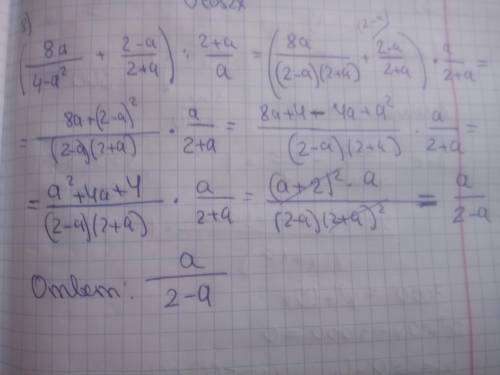 (8a/(4-a²) + (2-a)/(2+a)) : (2+a)/a = (8a/((2-a)(2+a)) + (2-a)/(2+a)) · a/(2+a) =
(2-a)
= (8a+(2-a)²)/((2-a)(2+a)) · a/(2+a) = (8a+4-4a+a²)/((2-a)(2+a)) · a/(2+a) =
= (a²+4a+4)/((2-a)(2+a)) · a/(2+a) = ((a+2)²·a)/((2-a)(2+a)²) = a/(2-a)
Ответ: a/(2-a)